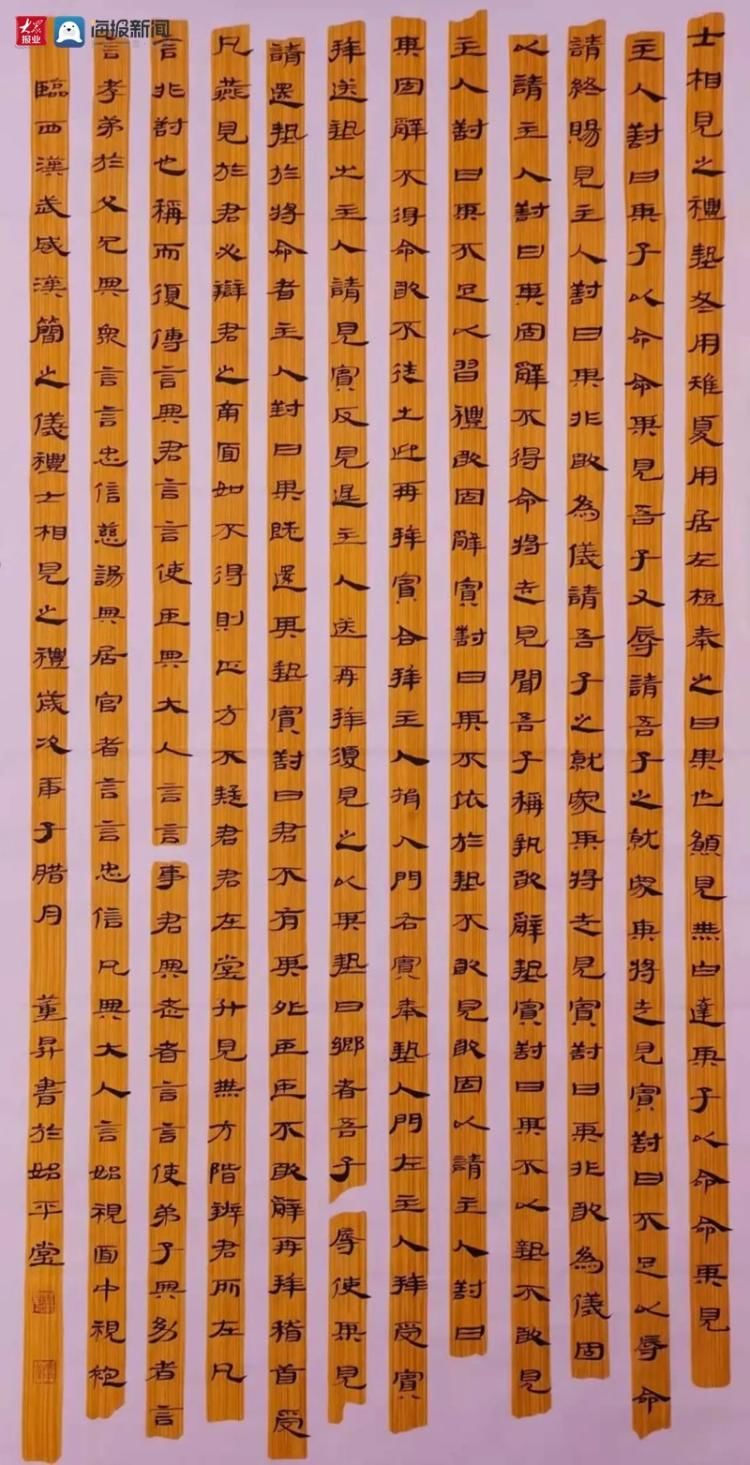 士相見之禮墊冬用雉夏用居左梪奉之曰某也願見無由達某子以命命某見
主人對曰某子以命命某見吾子又辱請吾子之就家某將走見賓對曰不足以辱命
請終賜見主人對曰某非敢為儀請吾子之就家某將走見賓對曰某非敢為儀固
以請主人對曰某固辭不得命將走見聞吾子稱執敢辭墊賓對曰某不以墊不敢見
主人對曰某不足以習禮敢固辭賓對曰某不依於墊不敢見敢固以請主人對曰
某固辭不得命敢不從士迎再拜賓合拜主人揖入門右賓奉墊入門左主人拜受賓
拜送墊出主人請見賓反見退主人送再拜復見之以某墊曰鄉者吾子辱使某見
請還墊於將命者主人對曰某既還某墊賓對曰君不有某外臣臣不敢辭再拜稽首受
凡燕見於君必辯君之南面如不得則正方不疑君君在堂升見無方階辨君所在凡
言非對也稱而復傳言與君言言使臣與大人言言事君與老者言言使弟子與幼者言
言孝弟於父兄與衆言言忠信慈諹與居官者言言忠信凡與大人言始視面中視袍
臨西漢武威漢簡之儀禮士相見之禮歲次庚子腊月 董昇書於始平堂
大众报业
海报新闻